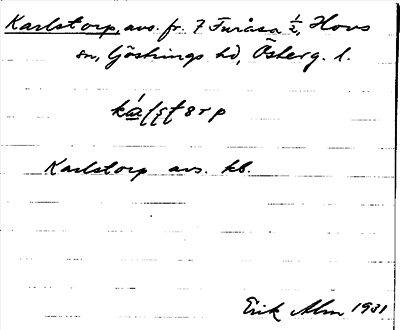 Karlstorp, avs. fr. 7 Furåsa 1/2, Hovs
sn, Göstrings hd, Österg. l.
Karlstorp avs. kb.
Erik Alm 1931